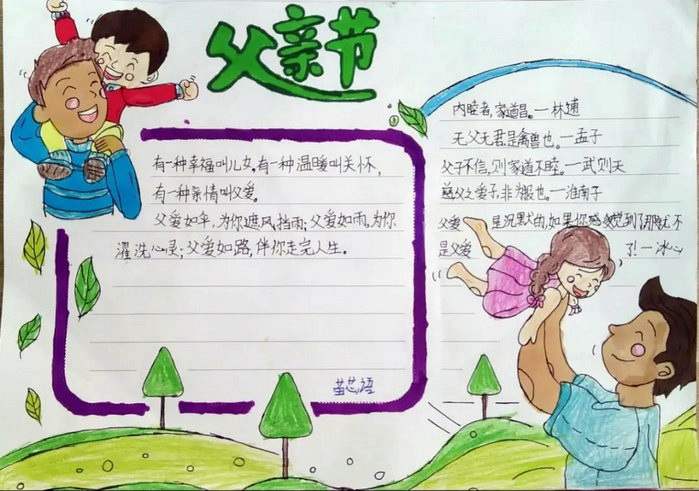 父亲节
有一种幸福叫儿女,有一种温暖叫关怀,
有一种亲情叫父爱。
父爱如伞,为你遮风挡雨;父爱如雨,为你
濯洗心灵;父爱如路,伴你走完人生。
苗芯语
内睦者,家道昌。一林逋
无父无君是禽兽也。一孟子
父子不信,则家道不睦。一武则天
慈父之爱子,非为报也。一淮南子
父爱 是沉默的,如果你感觉到了,那就不
是父爱 了!一冰心